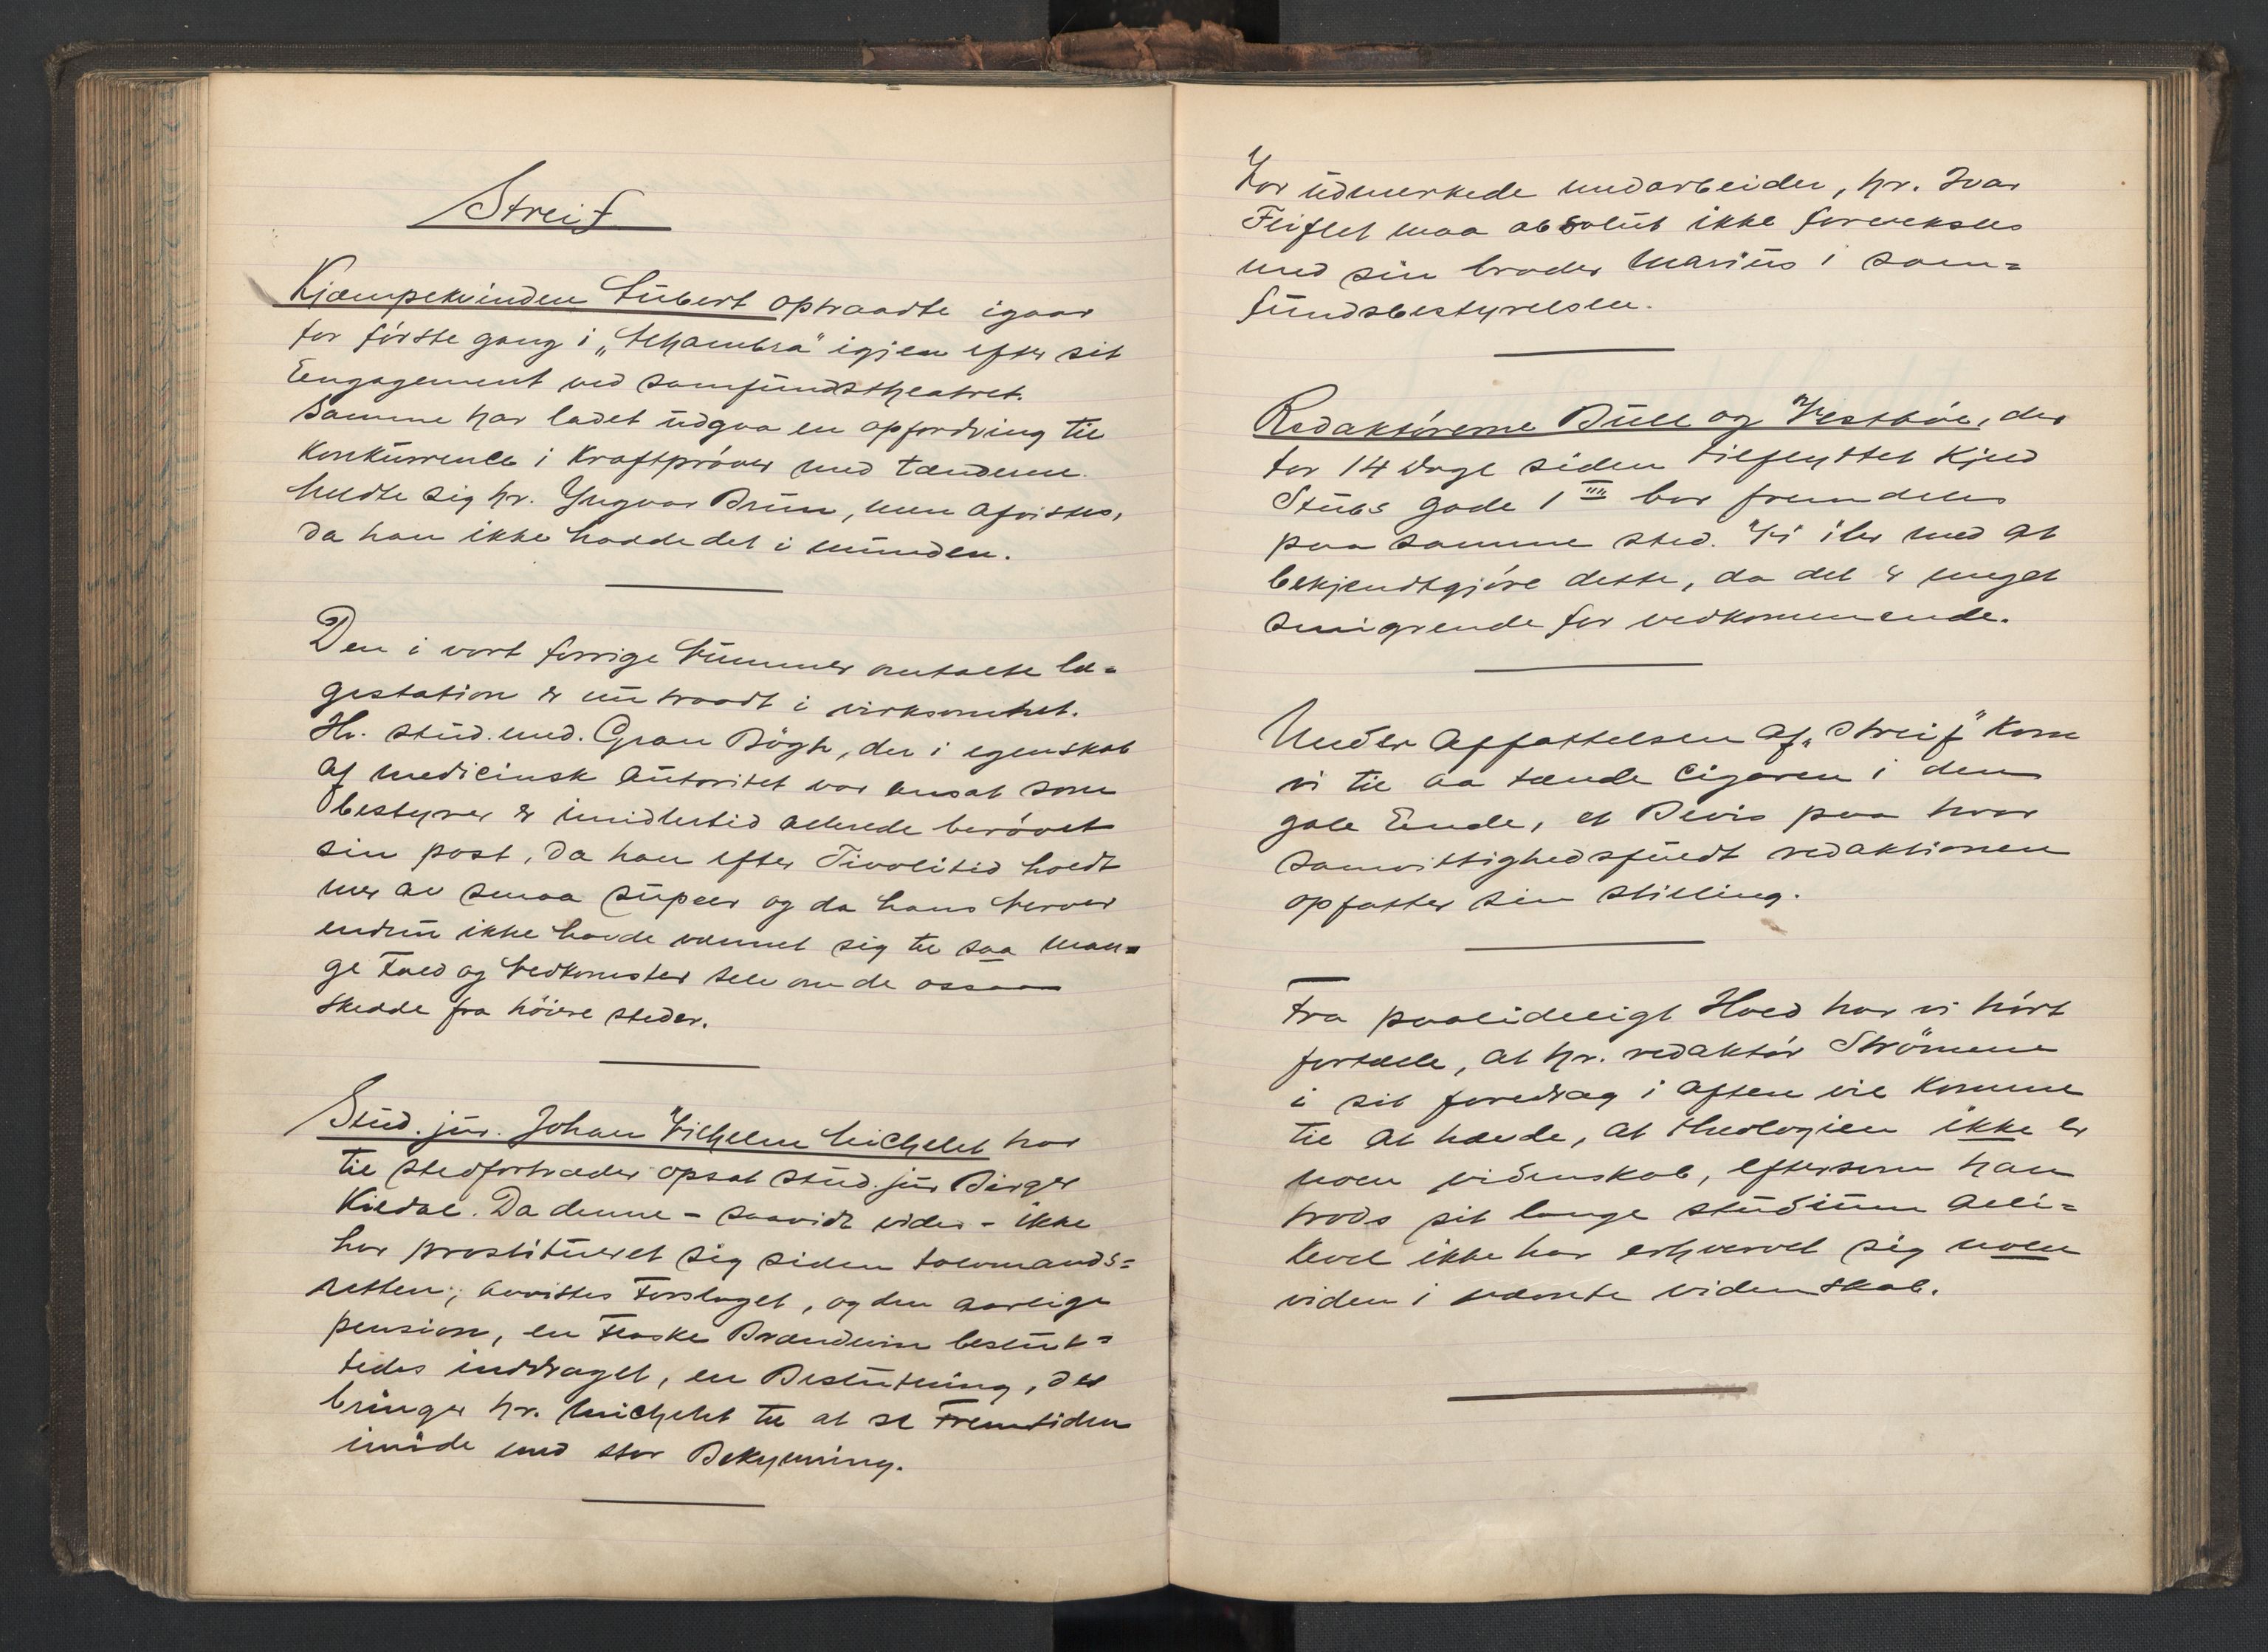 Streif
Kjæmpekvinden Lubert optraadte igaar
for første gang i „Alhambra" igjen efter sit
Engagement ved samfundstheatret.
Samme har ladet udgaa en opfordring til
Konkurrence i Kraftprøver med tænderne.
Meldte sig hr. Yngvar Brun, men afvistes,
da han ikke havde det i munden.
Den i vort forrige Nummer omtalte læ-
gestation er nu traadt i virksomhet.
Hr. stud. med. Gran Bögh, der i egenskab
af medicinsk autoritet var ansat som
bestyrer er imidlertid allerede berøvet
sin post, da han efter Tivolitid holdt
mer av smaa supeer og da hans Nerver
endnu ikke havde vænnet sig til saa man-
ge Fald og Nedkomster selv om de ossaa
skedde fra höiere steder.
Stud. jur. Johan Vilhelm Michelet har
til stedfortræder opsat stud. jur Birger
Kildal. Da denne - saavidt vides - ikke
har prostitueret sig siden tolvmands-
retten; avvistes Forslaget, og den aarlige
pension, en Flaske Brændevin beslut-
tedes inddraget, en Beslutning, der
bringer hr. Michelet til at se Fremtiden
imøde med stor Bekymring.
Vor udmerkede medarbeider, hr. Ivar
Fliflet maa absolut ikke forveksles
med sin broder Marius i sam-
fundsbestyrelsen.
Redaktørerne Bull og Vestbøe, der
for 14 Dage siden tilflyttet Kjeld
Stubs gade 1 III bor fremdeles
paa samme sted. Vi iler med at
bekjendtgjøre dette, da det er meget
smigrende for vedkommende.
Under Affattelsen af „Streif" kom
vi til aa tænde Cigaren i den
gale Ende, et Bevis paa hvor
samvittighedsfuldt redaktionen
opfatter sin stilling.
Fra paalideligt Hold har vi hørt
fortælle, at hr. redaktør Strömme
i sit foredrag i aften vil komme
til at hævde, at theologien ikke er
noen videnskab, eftersom han
trods sit lange studium alli-
kevel ikke har erhvervet sig noen
viden i nævnte videnskab.